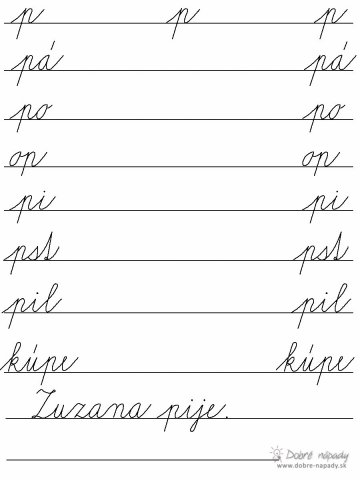 p p p
pá pá
po po
op op
pi pi
pst pst
pil pil
kúpe kúpe
Zuzana pije.
Dobré nápady
www.dobre-napady.sk